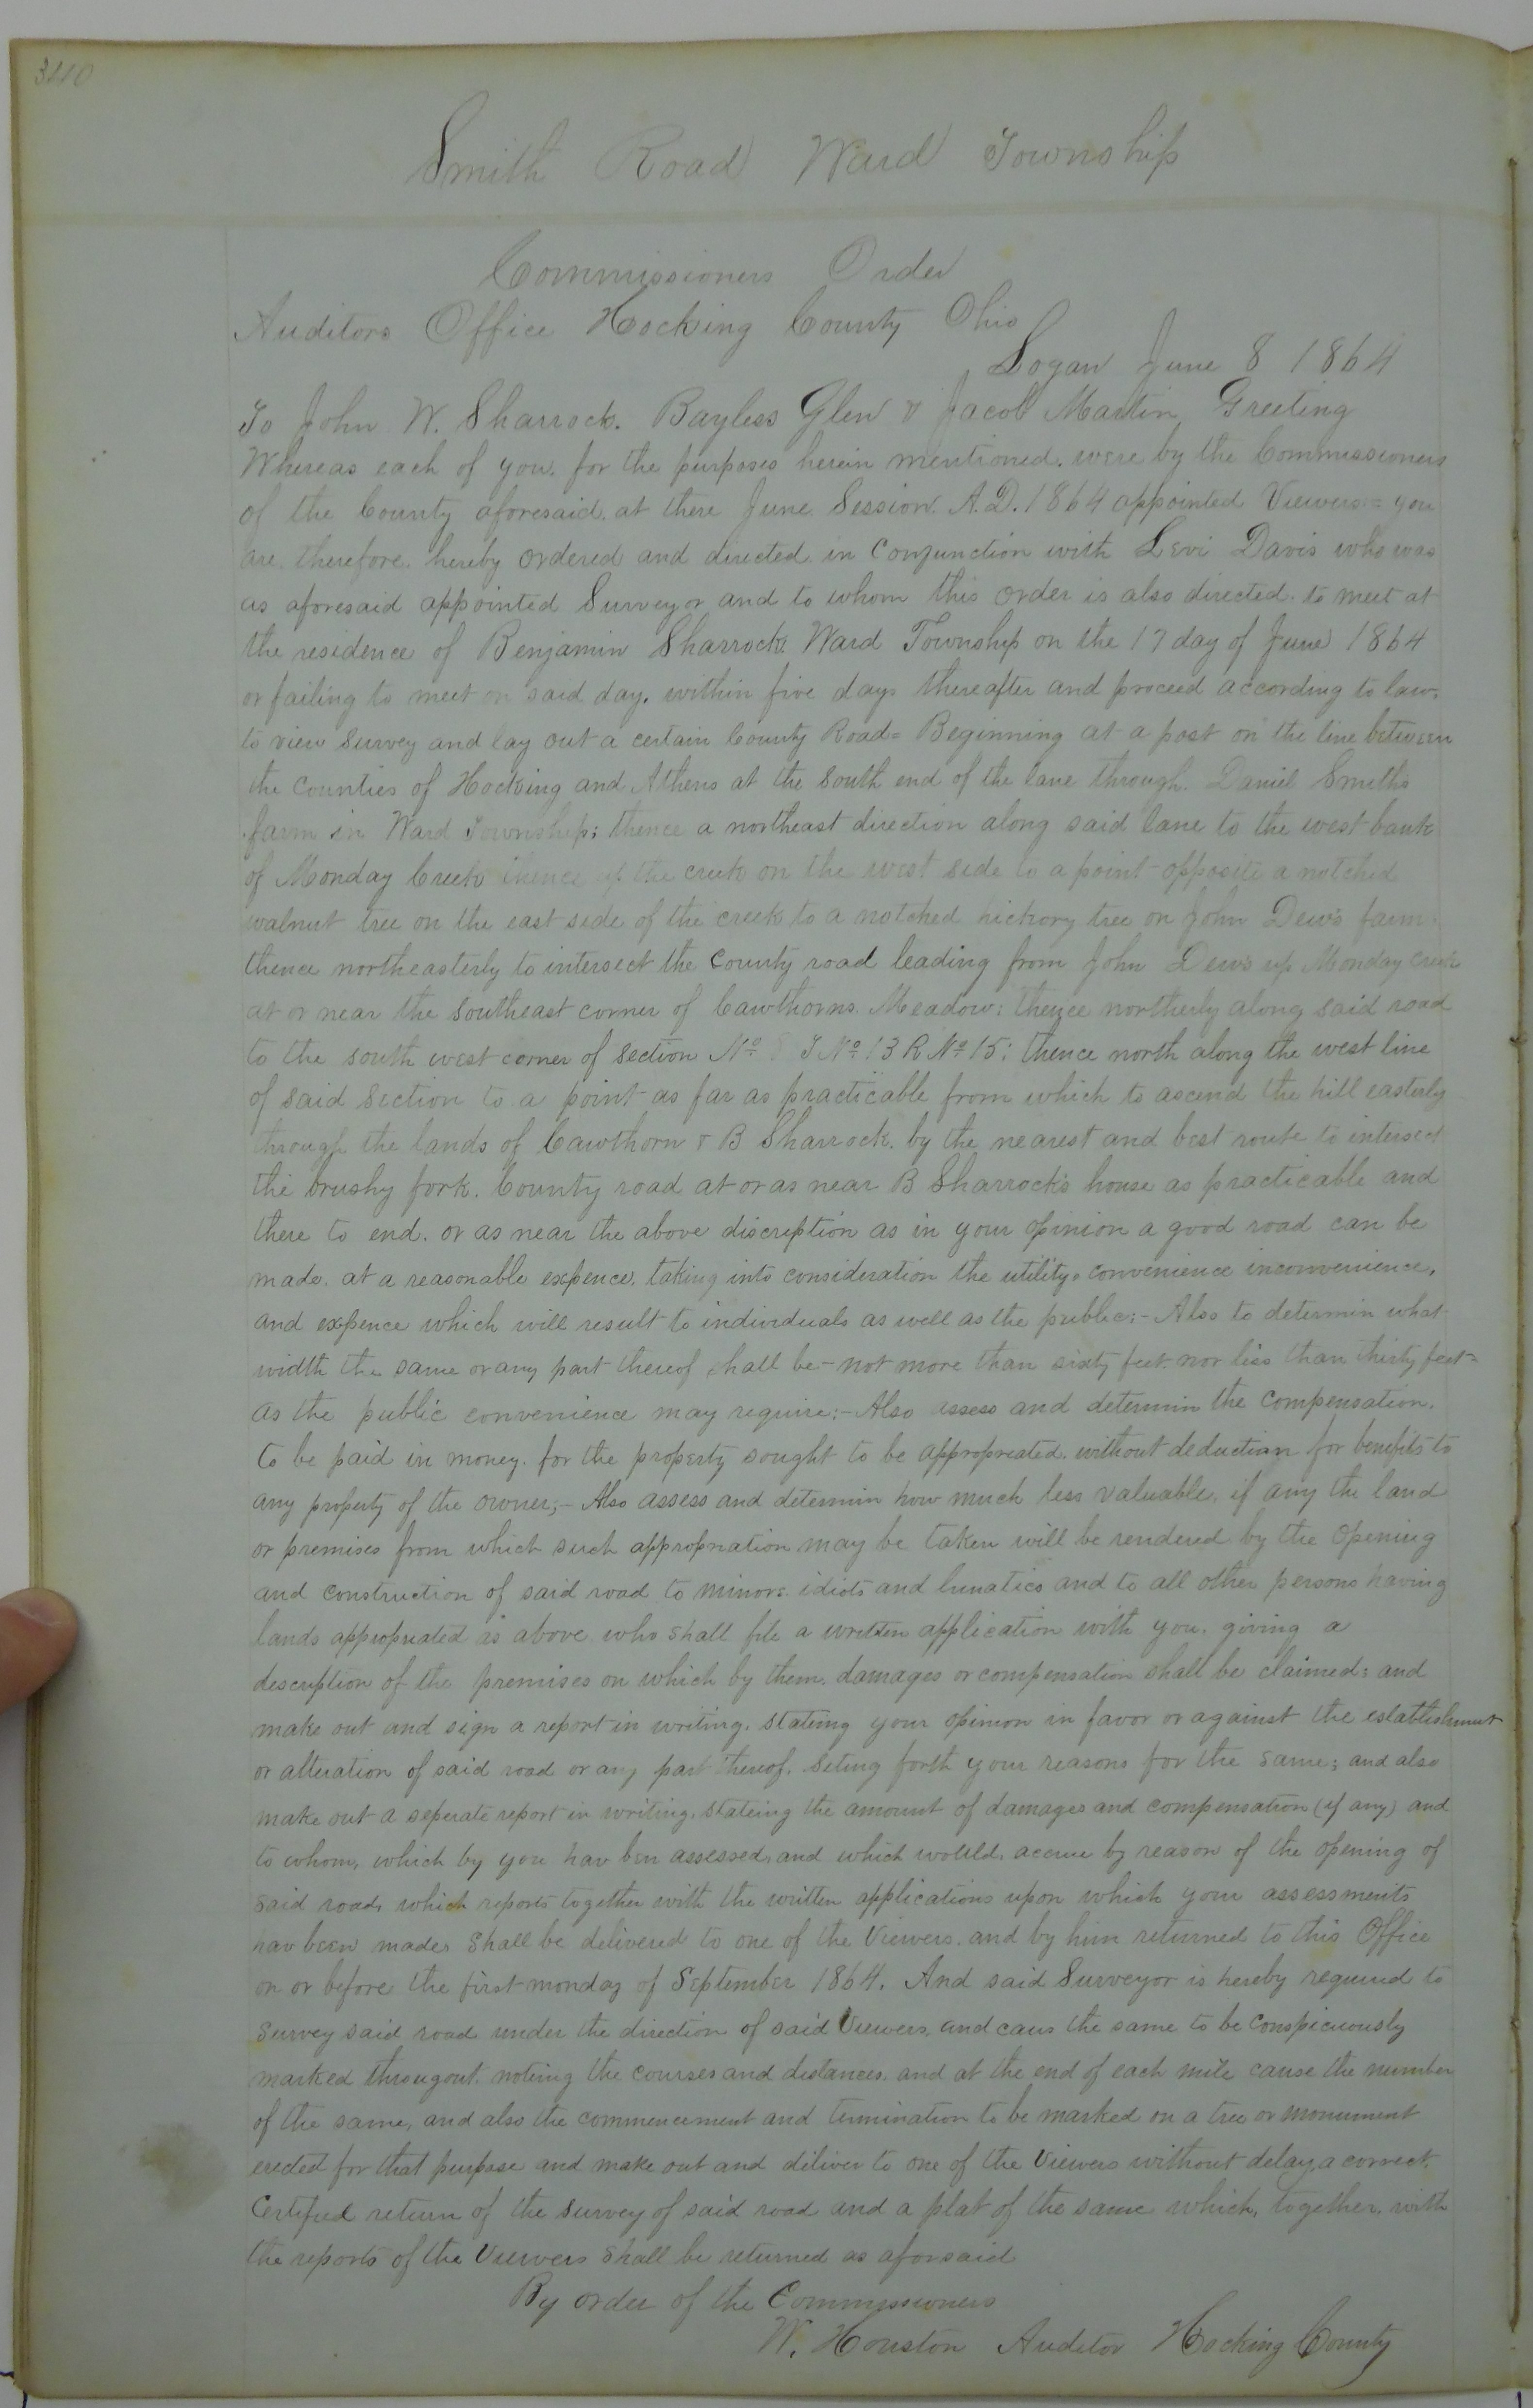 Smith Road Ward Township
Commissioners Order
Auditors Office Hocking County Ohio
Logan June 8 1864
To John W. Sharrock. Bayless Glen & Jacob Martin Greeting
Whereas each of you. for the purposes herein mentioned. were by the Commissioners
of the County aforesaid. at there June Session. A.D. 1864 appointed Viewers = you
are. therefore. hereby ordered and directed in conjunction with Levi Davis who was
as aforesaid appointed Surveyor and to whom this order is also directed. to meet at
the residence of Benjamin Sharrock. Ward Township on the 17 day of June 1864
or failing to meet on said day. within five days thereafter and proceed according to law.
to view survey and lay out a certain County Road = Beginning at a post on the line between
the Counties of Hocking and Athens at the South end of the lane through. Daniel Smith's
farm in Ward Township; thence a northeast direction along said lane to the west bank
of Monday Creek thence up the creek on the west side to a point opposite a notched
walnut tree on the east side of the creek to a notched hickory tree on John Dew's farm.
thence northeasterly to intersect the County road leading from John Dew's up Monday Creek
at or near the southeast corner of Cawthorns Meadow; thence northerly along said road
to the south west corner of section No T No 13 R No 15; thence north along the west line
of said section to a point as far as practicable from which to ascend the hill easterly
through the lands of Cawthorn & B Sharrock. by the nearest and best route to intersect
the brushy fork. County road at or as near B Sharrock's house as practicable and
there to end. or as near the above discreption as in your opinion a good road can be
made. at a reasonable expence. taking into consideration the utility. convenience inconvenience,
and expence which will result to individuals as well as the public;- Also to determin what
width the same or any part thereof shall be - not more than sixty feet. nor less than thirty feet =
as the public convenience may require;- Also assess and determin the compensation.
to be paid in money. for the property sought to be appropreated. without deduction for benefits to
any property of the owner;- Also assess and determin how much less valuable. if any the land
or premises from which such appropriation may be taken will be rendered by the opening
and construction of said road to minors idiots and lunatics and to all other persons having
lands appropreated as above who shall file a written application with you. giving a
description of the premises on which by them. damages or compensation shall be claimed; and
make out and sign a report in writing. stateing your opinion in favor or against the establishment
or alteration of said road or any part thereof. seting forth your reasons for the same; and also
make out a seperate report in writing. stateing the amount of damages and compensation (if any) and
to whom, which by you hav ben assessed, and which would, accrue by reason of the opening of
said road, which reports together with the written applications upon which your assessments
hav been made, shall be delivered to one of the Viewers. and by him returned to this Office
on or before the first monday of September 1864. And said Surveyor is hereby required to
survey said road under the direction of said Viewers. and caus the same to be conspicuously
marked througout. noteing the courses and distances. and at the end of each mile cause the number
of the same, and also the commencement and termination to be marked on a tree or monument
erected for that purpose and make out and deliver to one of the Viewers without delay, a correct.
Certified return of the survey of said road and a plat of the same which, together. with
the reports of the Viewers shall be returned as aforsaid
By order of the Commissioners
W. Houston Auditor Hocking County